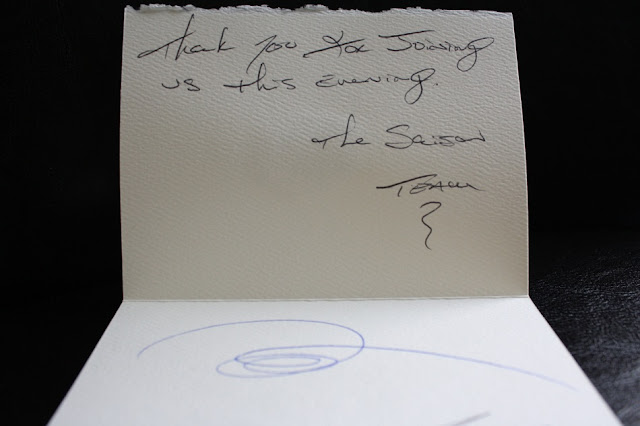 Thank you for Joining
us this evening.
The Saison
Team